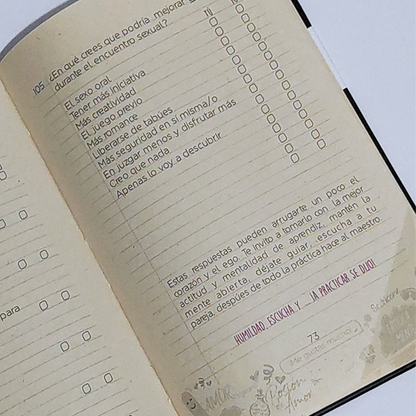 105 ¿En qué crees que podría mejorar
durante el encuentro sexual?
El sexo oral
Tener más iniciativa
Más creatividad
El juego previo
Más romance
Liberarse de tabues
Más seguridad en sí misma/o
En juzgar menos y disfrutar más
Creo que nada
Apenas lo voy a descubrir
Estas respuestas pueden arrugarte un poco el
corazón y el ego. Te invito a tomarlo con la mejor
actitud y mentalidad de aprendiz, mantén la
mente abierta, déjate guiar, escucha a tu
pareja, después de todo la práctica hace al maestro
HUMILDAD, ESCUCHA Y ... ¡A PRACTICAR SE DIJO!
73
Me gustas mucho
AMOR
para